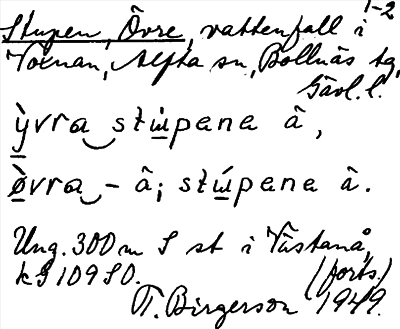 1-2
Stupen, Övre, vattenfall i
Voxnan, Alfta sn, Bollnäs tg,
Gävl. l.
ỳvra‿stu̱̇pena â,
ø̱̀vra‿- â; stú̱pena â.
Ung. 300 m S st i Västanå,
k G 109 S D. (forts.)
T. Birgerson 1949.